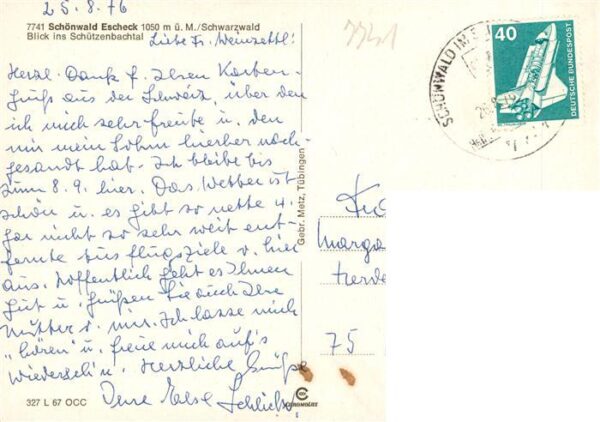 25.8.76
7741 Schönwald Escheck 1050 m ü. M./Schwarzwald
Blick ins Schützenbachtal
Liebe Fr.
Herzl. Dank f. Ihren Karten-
gruß aus der Schweiz, über den
ich mich sehr freute u. den
mir mein Sohn hierher nach-
gesandt hat. Ich bleibe bis
zum 8.9. hier. Das Wetter ist
schön u. es gibt so nette u.
gar nicht so sehr weit ent-
fernte Ausflugsziele v. hier
aus. Hoffentlich geht es Ihnen
gut u. grüßen Sie auch Ihre
Mutter v. mir. Ich lasse mich
"hören" u. freue mich auf's
Wiederseh'n. Herzliche Grüße
Ihre Else
327 L 67 OCC
Gebr. Metz, Tübingen
7741
SCHÖNWALD IM
40
DEUTSCHE BUNDESPOST
Marga
75